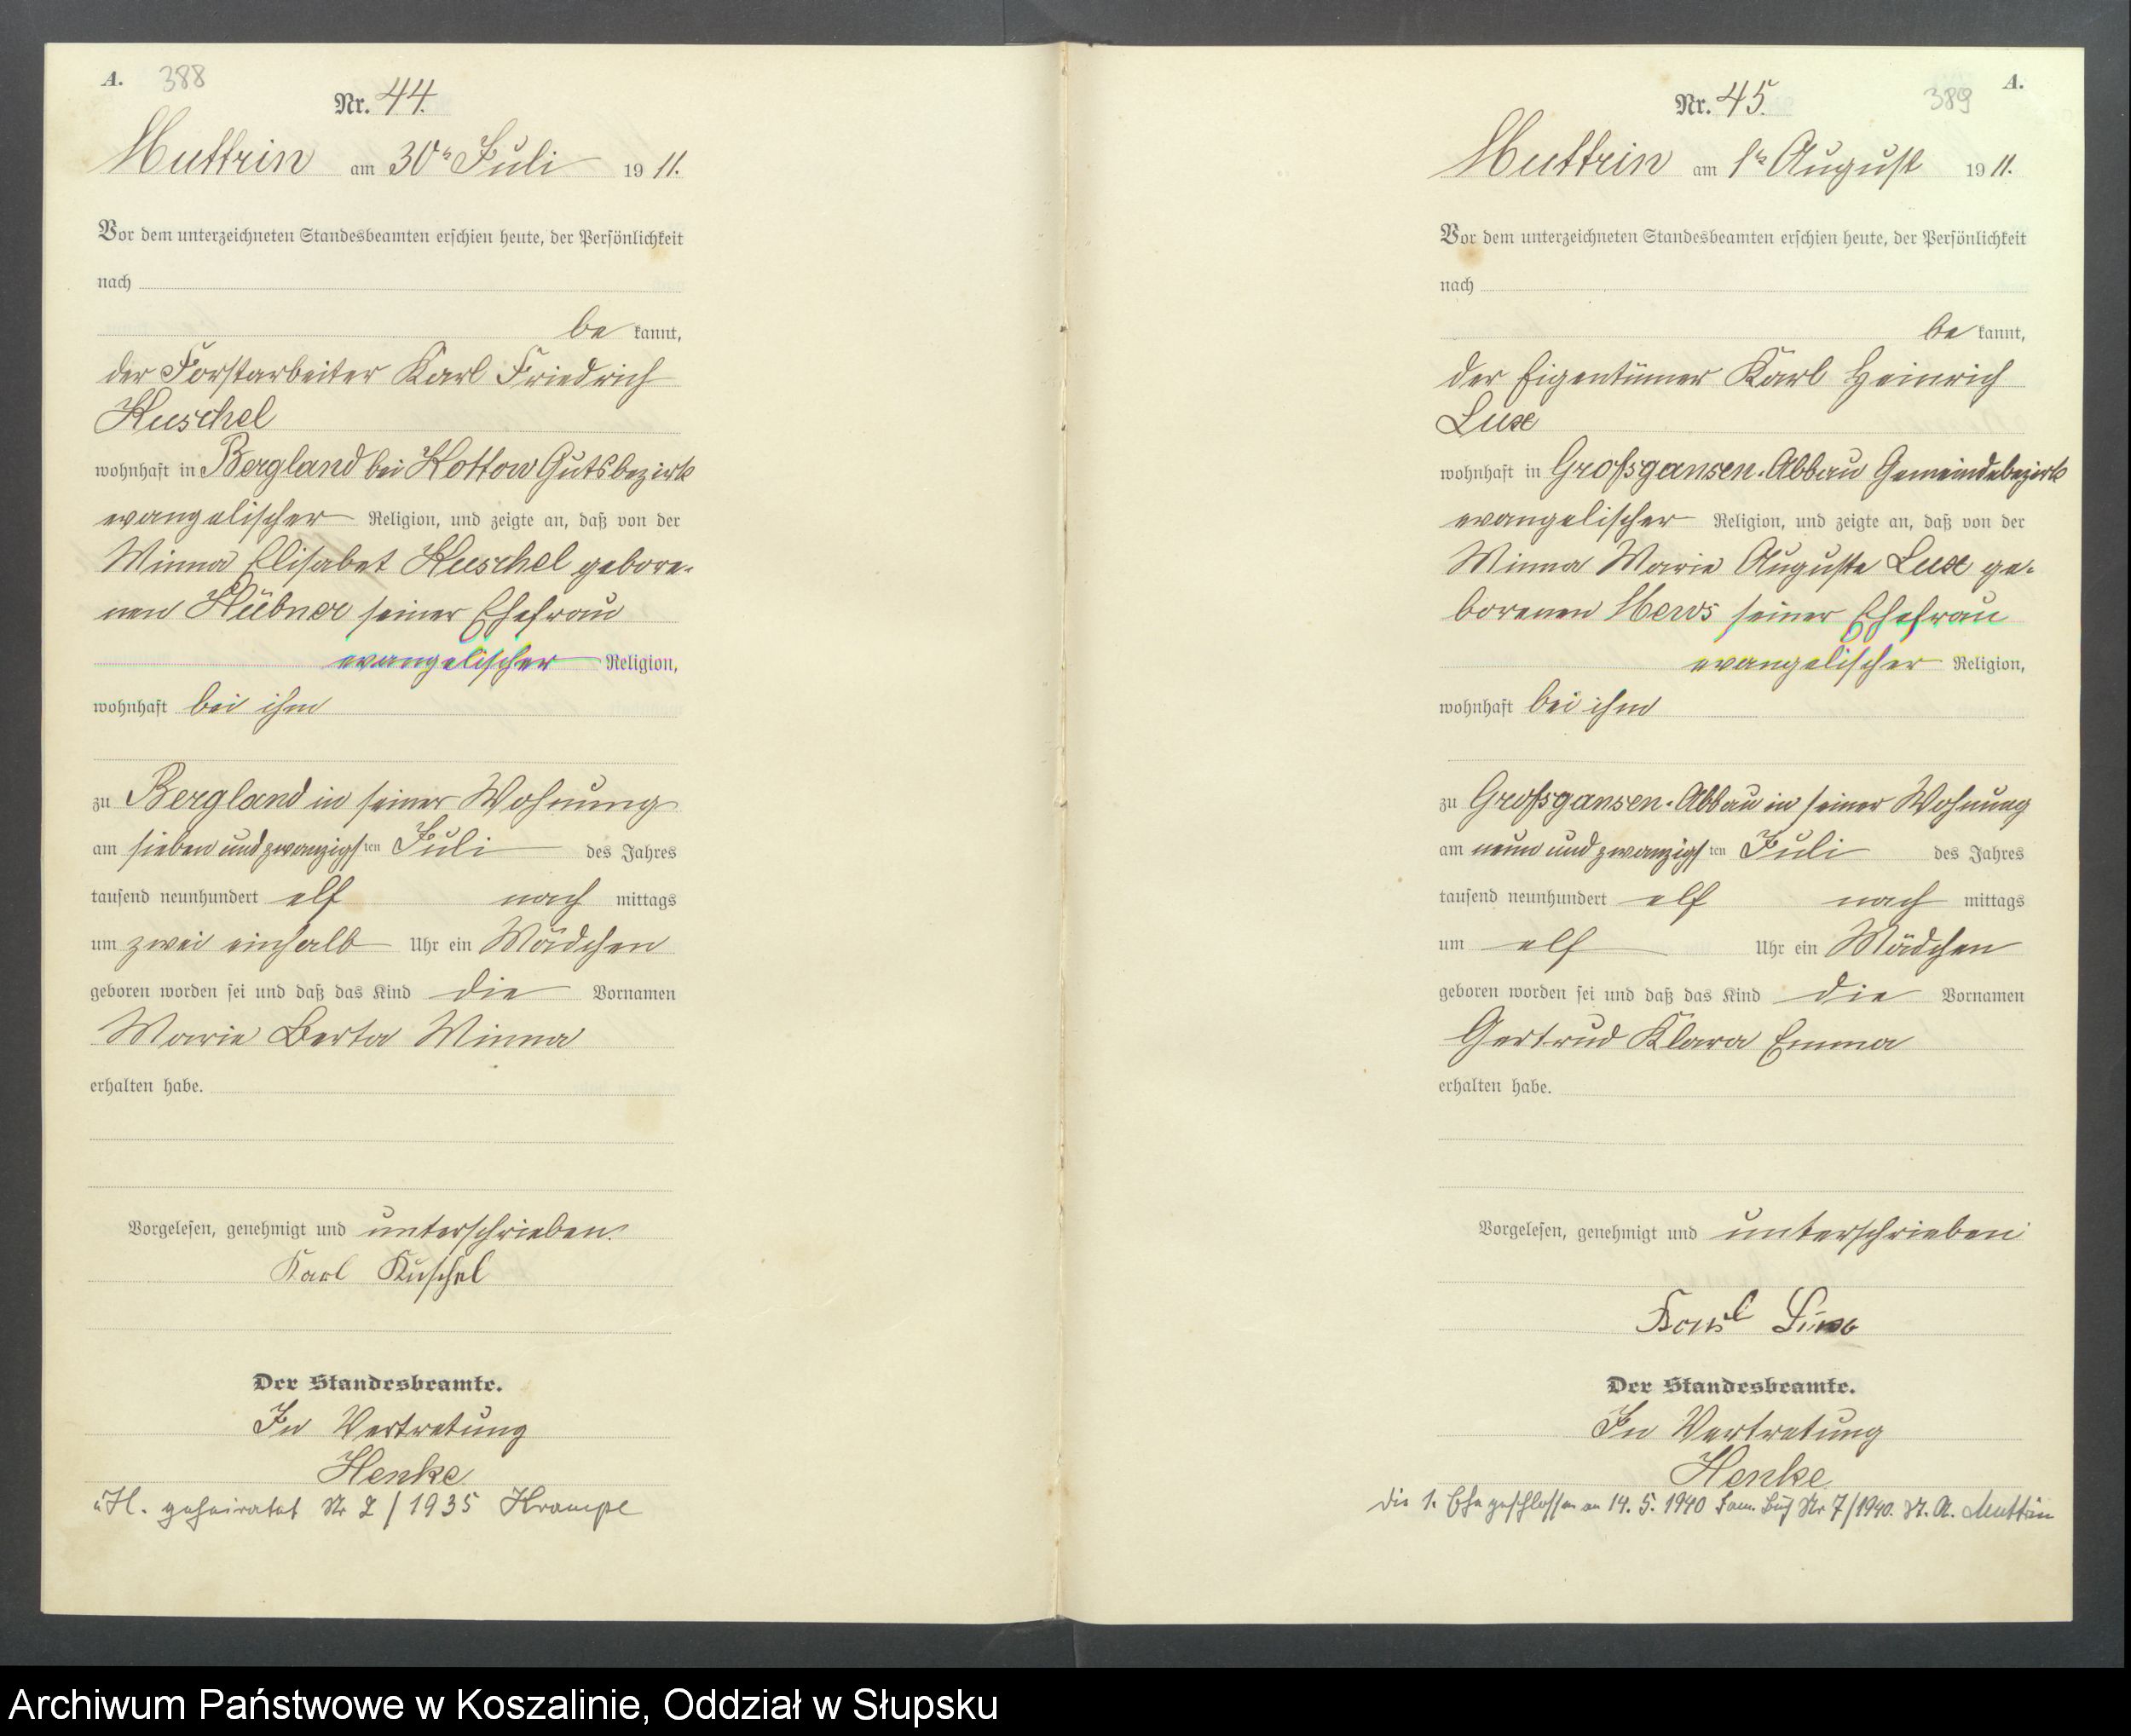 A. 388
Nr. 44.
Muttrin am 30ten Juli 1911.
Vor dem unterzeichneten Standesbeamten erschien heute, der Persönlichkeit
nach
be kannt,
der Forstarbeiter Karl Friedrich
Kuschel
wohnhaft in Bergland bei Kottow Gutsbezirk
evangelischer Religion, und zeigte an, daß von der
Minna Elisabet Kuschel gebore-
nen Hübner seiner Ehefrau
evangelischer Religion,
wohnhaft bei ihm
zu Bergland in seiner Wohnung
am sieben und zwanzigsten Juli des Jahres
tausend neunhundert elf nach mittags
um zwei einhalb Uhr ein Mädchen
geboren worden sei und daß das Kind die Vornamen
Marie Berta Minna
erhalten habe.
Vorgelesen, genehmigt und unterschrieben.
Karl Kuschel
Der Standesbeamte.
In Vertretung
Henke
geheiratet Nr 2/1935 Krampe
A.
389
Nr. 45.
Muttrin am 1ten August 1911.
Vor dem unterzeichneten Standesbeamten erschien heute, der Persönlichkeit
nach
be kannt,
der Eigentümer Karl Heinrich
Lux
wohnhaft in Großgansen-Abbau Gemeindebezirk
evangelischer Religion, und zeigte an, daß von der
Minna Marie Auguste Lux ge-
borenen Mews seiner Ehefrau
evangelischer Religion,
wohnhaft bei ihm
zu Großgansen-Abbau in seiner Wohnung
am neun und zwanzigsten Juli des Jahres
tausend neunhundert elf nach mittags
um elf Uhr ein Mädchen
geboren worden sei und daß das Kind die Vornamen
Gertrud Klara Emma
erhalten habe.
Vorgelesen, genehmigt und unterschrieben
Karl Lux
Der Standesbeamte.
In Vertretung
Henke
Die 1. Ehe geschlossen am 14. 5. 1940 Fam. Buch Nr 7/1940. St. A. Muttrin
Archiwum Państwowe w Koszalinie, Oddział w Słupsku